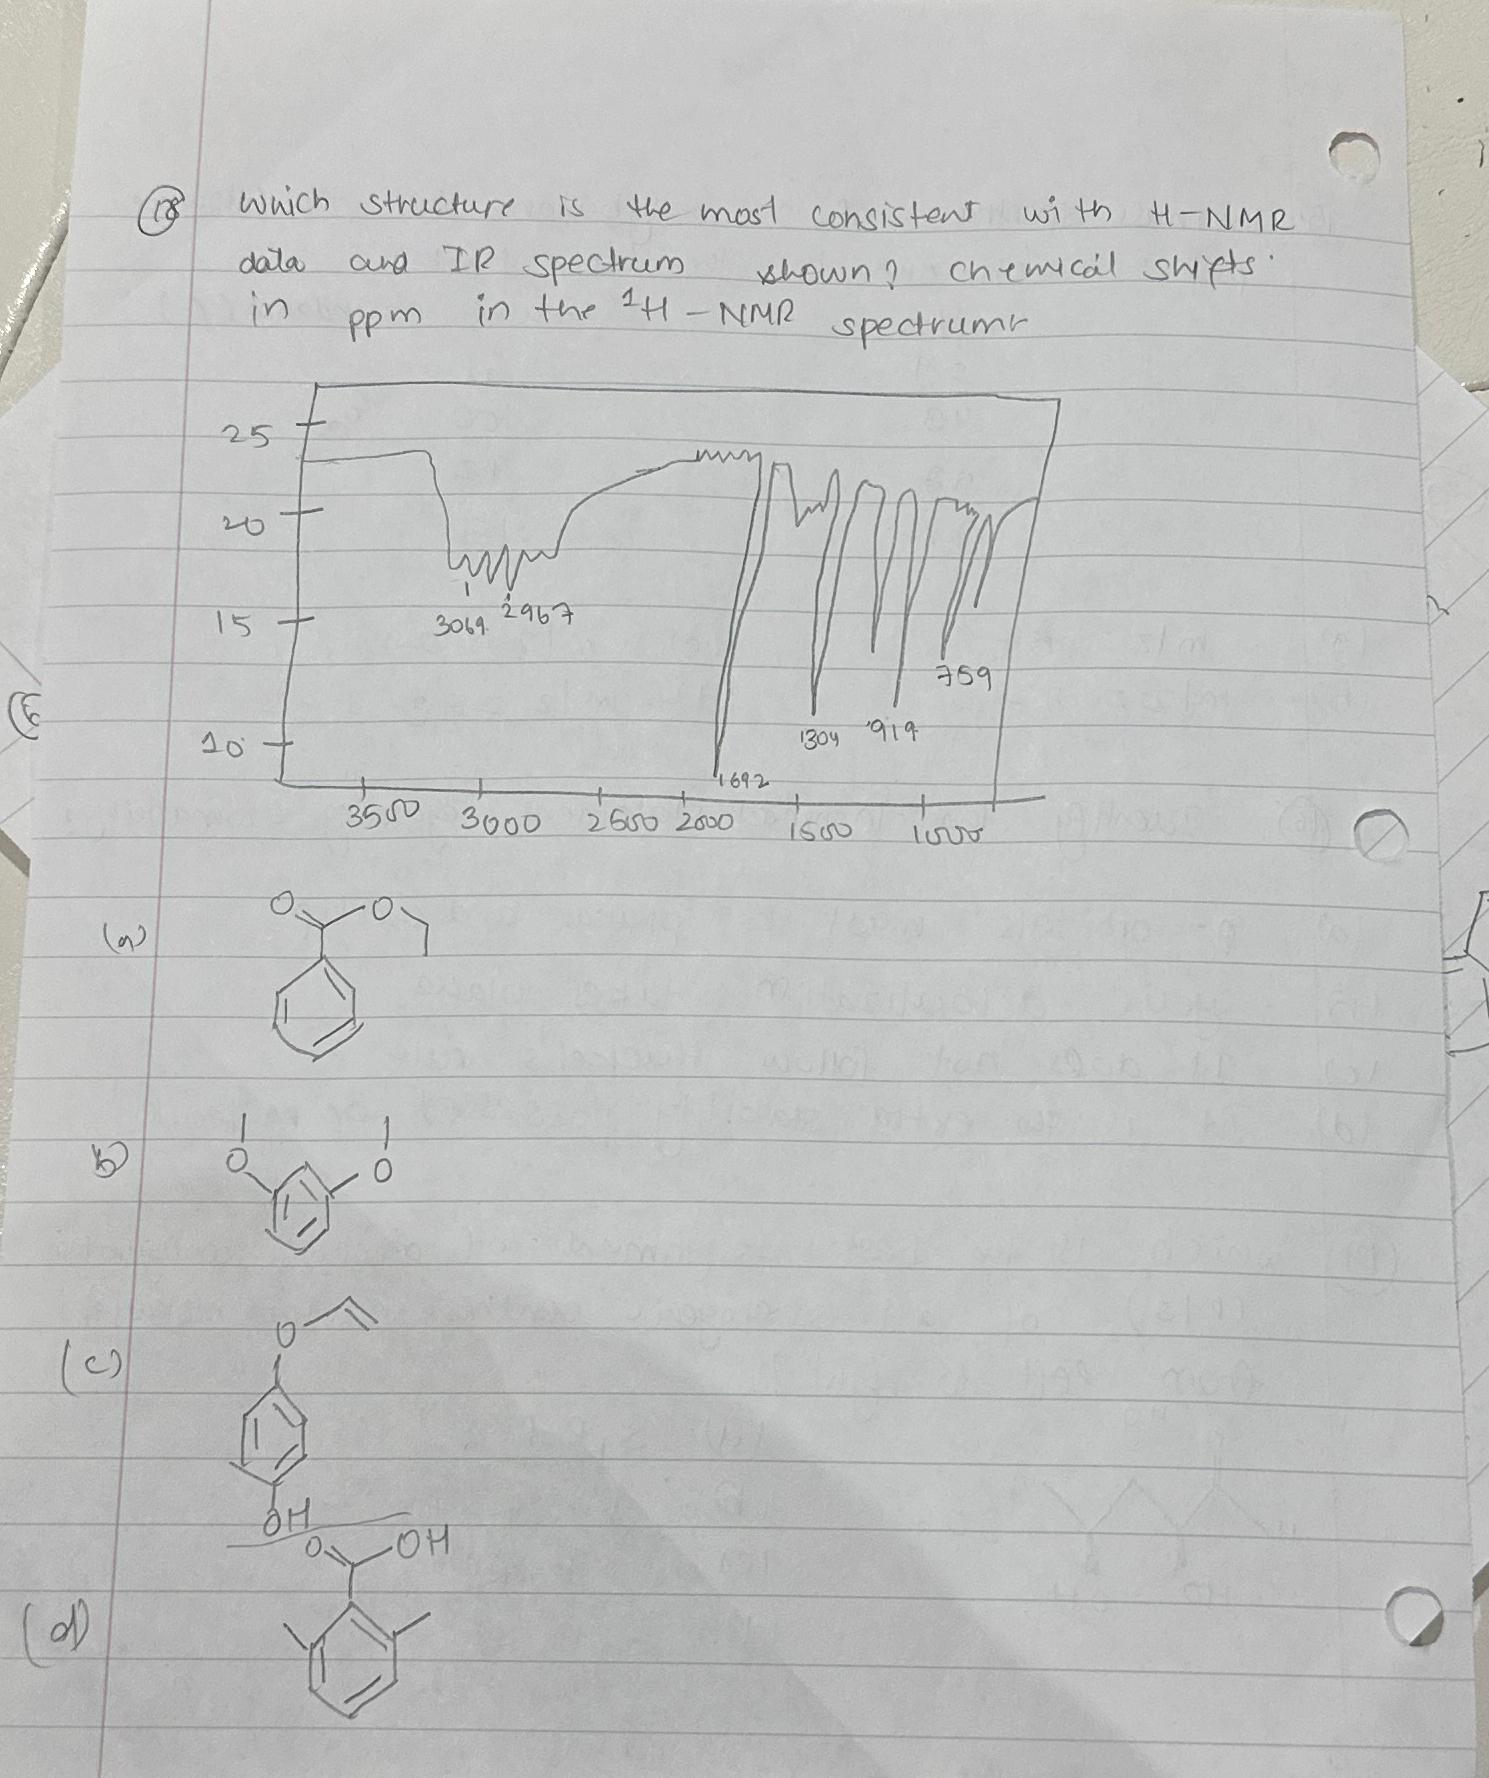 18 Which structure is the most consistent with H-NMR
data and IR spectrum shown? chemical shifts
in ppm in the ¹H - NMR spectrum
25
20
15
10
3069 2967
1692
1304
919
759
3500 3000 2500 2000 1500 1000
(a)
O O
b)
O O
(c)
O
OH
(d)
O OH